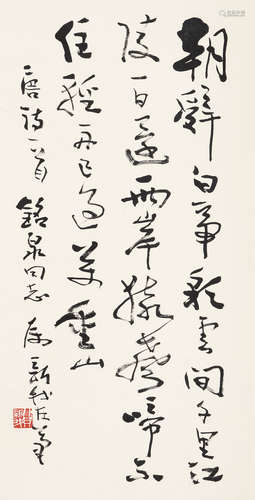 朝辭白帝彩雲間千里江
陵一日還兩岸猿聲啼不
住輕舟已過萬重山
唐詩一首 銘泉同志属 新我左筆